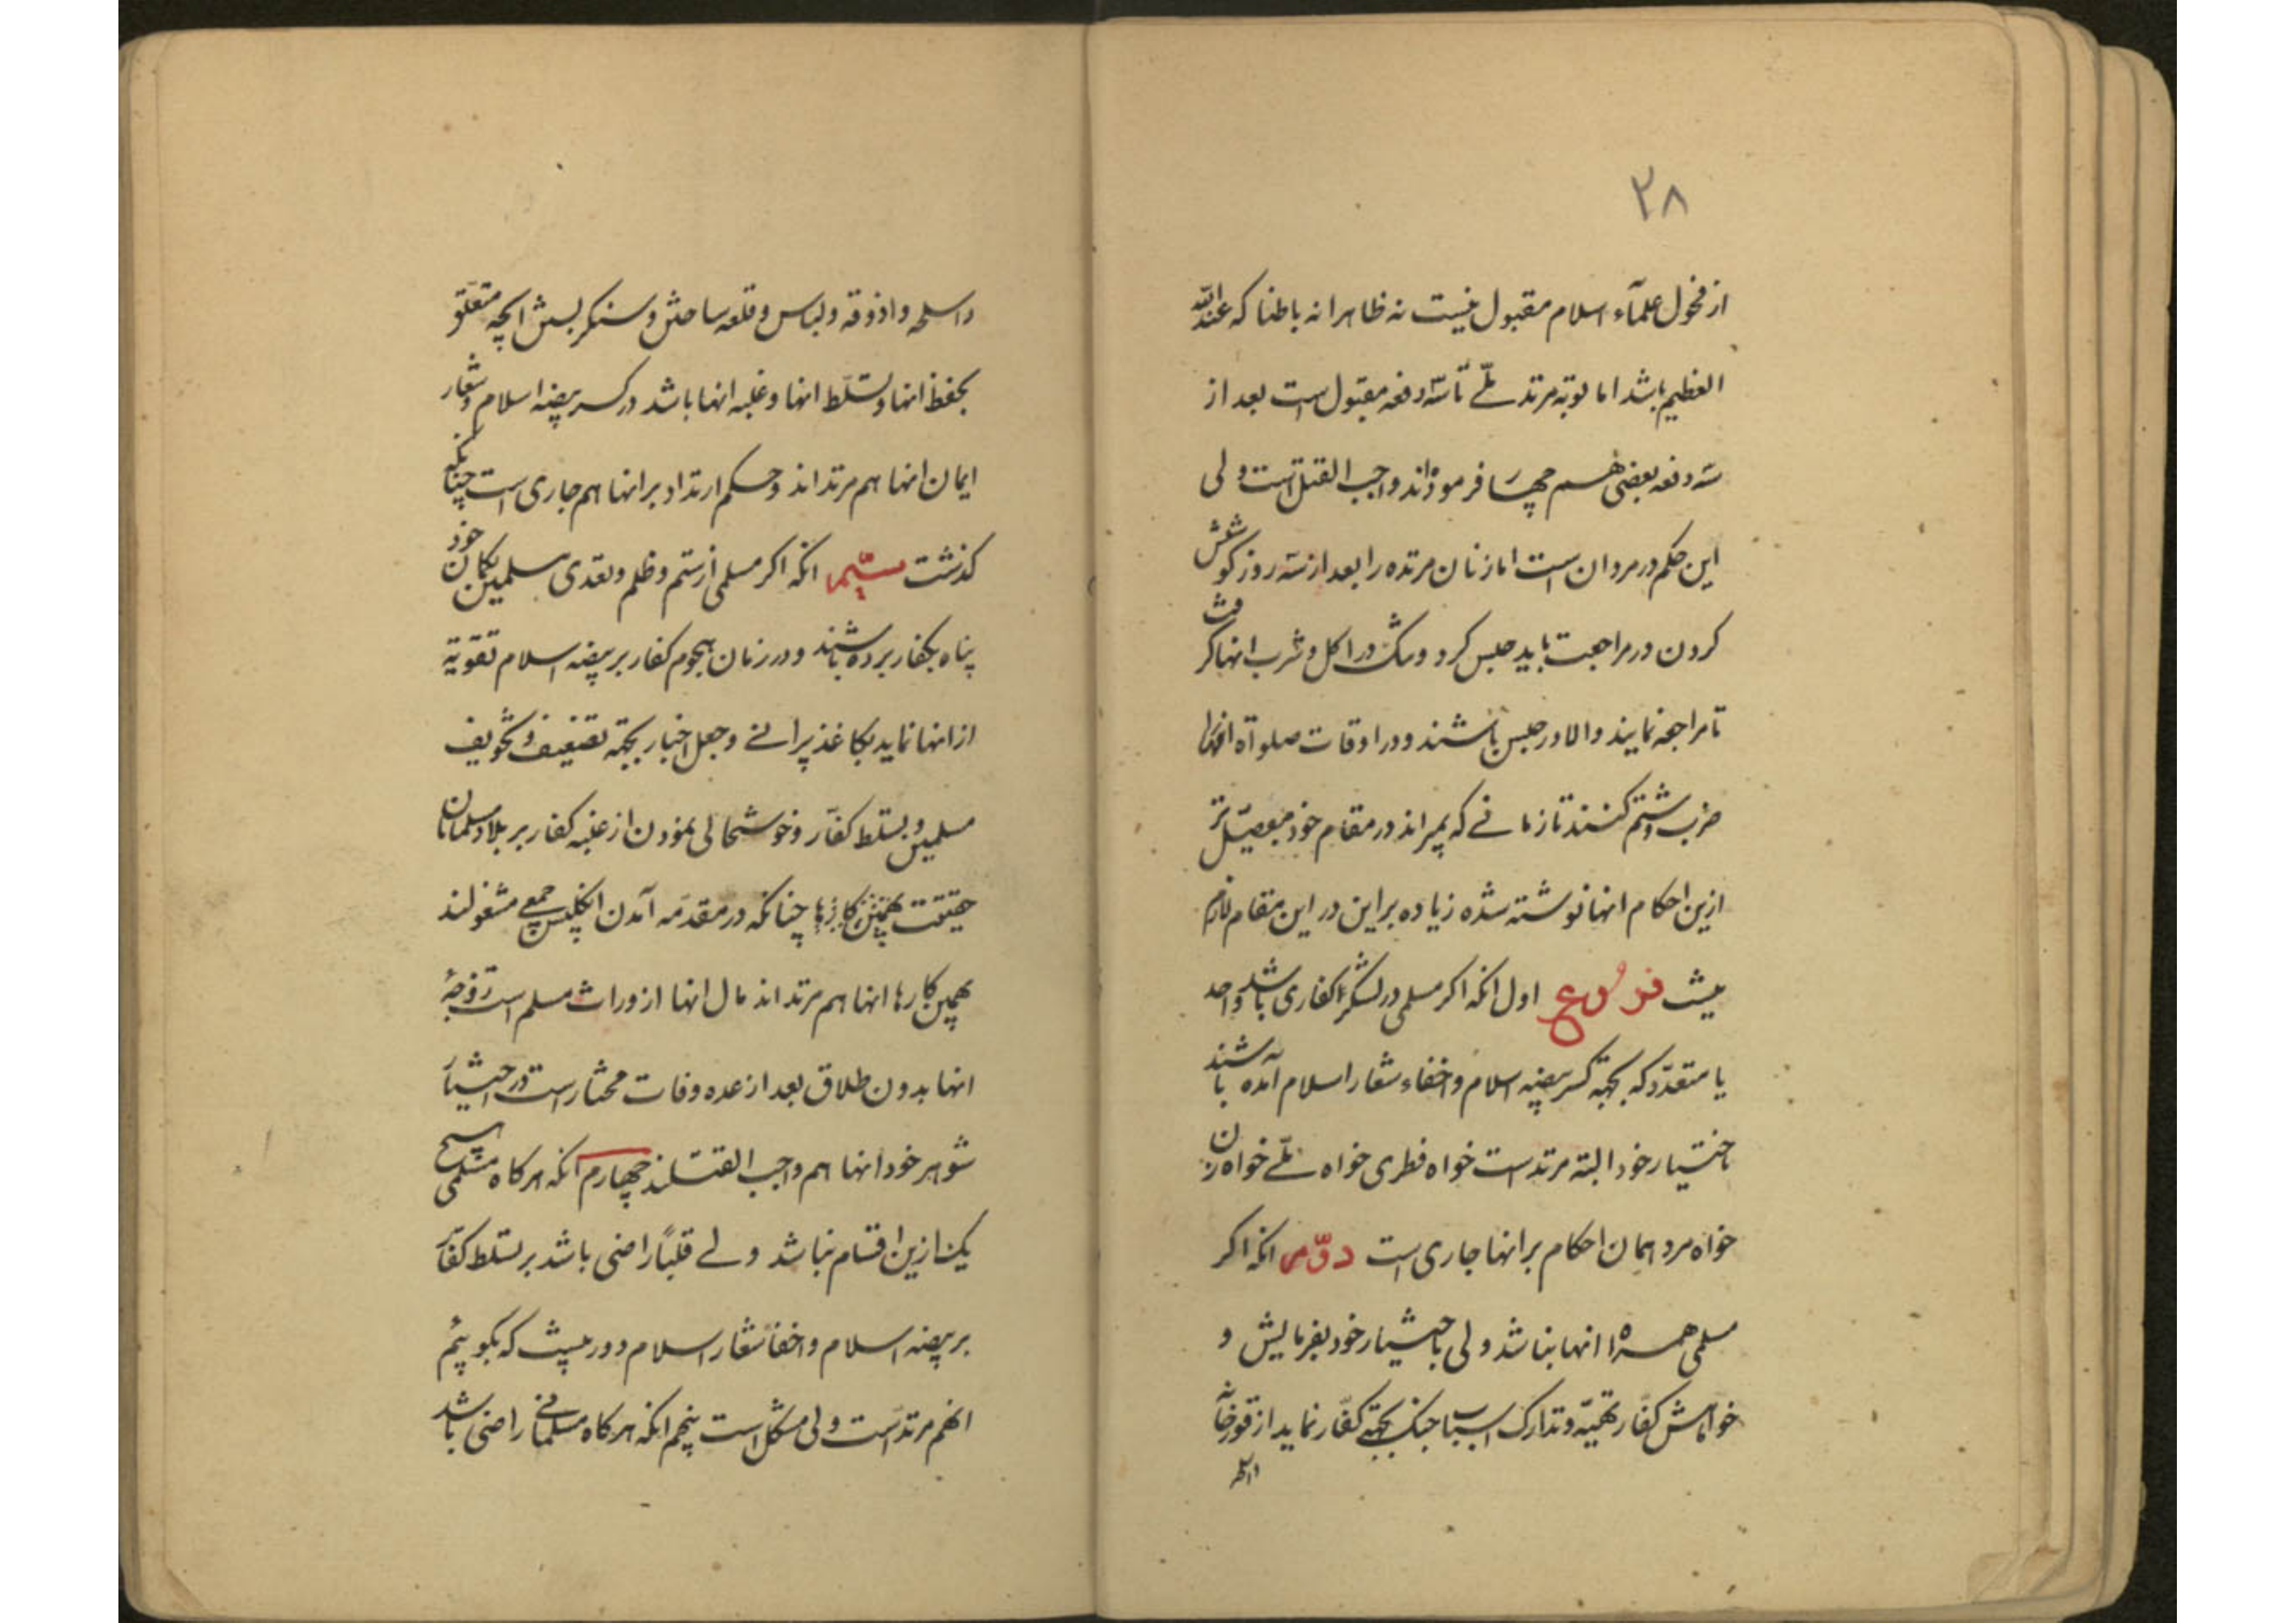 ۲۸
از فحول علمآء اسلام مقبول نیست نه ظاهرا نه باطنا که عند الله
العظیم باشد اما توبه مرتد ملّے تا سّه دفعه مقبول است بعد از
سّه دفعه بعضی هم چهار فرموده‌اند واجب القتل است ولی
این حکم در مردان است اما زنان مرتده را بعد از سّه روز کوشش
کردن در مراجعت باید حبس کرد و در اکل و شرب انها
تا مراجعه نمایند والا در حبس باشند و در اوقات صلواة انها را
ضرب و شتم کنند تا زمانے که بمیراند در مقام خود مفصیّل تر
ازین احکام انها نوشته شده زیاده بر این در این مقام لازم
نیست فروع اول انکه اکر مسلمی در لشکر کفاری باشد واحد
یا متعدّد که بجهتة کسر بیضه اسلام و اخفاء شعار اسلام آمده باشند
باختیار خود البته مرتد است خواه فطری خواه ملّے خواه زن
خواه مرد همان احکام بر انها جاری است دوّم انکه اکر
مسلمی همراه انها نباشد ولی باختیار خود بفرمایش و
خواهش کفّار تهیّه و تدارک اسباب جنک بجهتے کفّار نماید از قورخانه
واسلحه
واسلحه و اذوقه و لباس و قلعه ساختن و سنکر بستن انچه متعلّق
بحفظ انها و تسلّط انها و غلبه انها باشد در کسر بیضه اسلام و شعار
ایمان انها هم مرتداند و حکم ارتداد بر انها هم جاری است چنانکه
کذشت سیّم انکه اکر مسلمی از ستم و ظلم و تعدی مسلمین بکمان خود
پناه بکفار برده باشند و در زمان هجوم کفار بر بیضه اسلام تقویة
از انها نماید بکاغذ پرانے و جعل اخبار بجهة تضعیف و تخویف
مسلمین و تسلط کفّار و خوشحالی نمودن از غلبه کفار بر بلاد مسلمانان
حقیقت همچنین کارها چنانکه در مقدّمه آمدن انکلیس جمعے مشغولند
بهمین کارها انها هم مرتداند مال انها از وراث مسلم است و زوجهٔ
انها بدون طلاق بعد از عده وفات مختار است در اختیار
شوهر خود انها هم واجب القتلند چهارم انکه هرکاه مسلمی هیچ
یک ازین اقسام نباشد ولے قلباً راضی باشد بر تسلط کفّار
بر بیضه اسلام و اخفا شعار اسلام دور نیست که بکوییم
انهم مرتد است ولی مشکل است پنجم انکه هرکاه مسلمانے راضی باشد